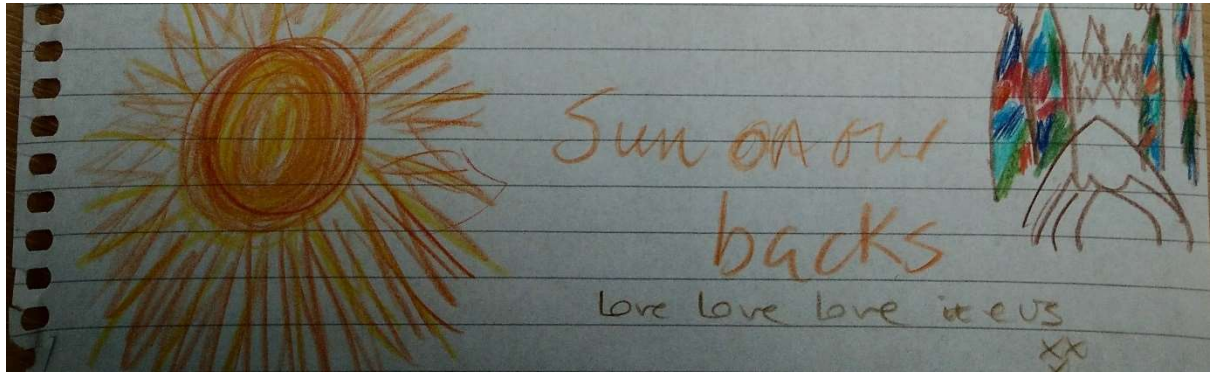 Sun on our
backs
love love love
xx